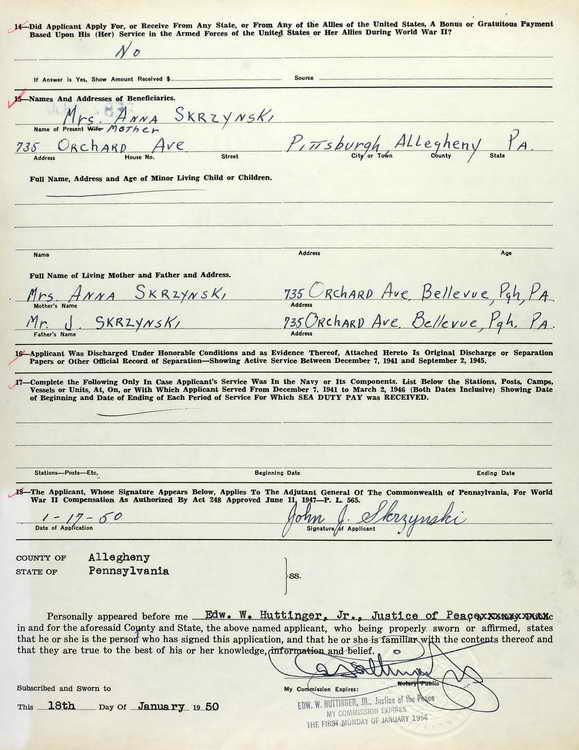 14—Did Applicant Apply For, or Receive From Any State, or From Any of the Allies of the United States, A Bonus or Gratuitous Payment
Based Upon His (Her) Service in the Armed Forces of the United States or Her Allies During World War II?
No
If Answer is Yes, Show Amount Received $ Source
15—Names And Addresses of Beneficiaries.
Mrs. ANNA SKRZYNSKI
Name of Present Wife MOTHER
735 ORCHARD AVE PITTSBURGH, ALLEGHENY PA.
Address House No. Street City or Town County State
Full Name, Address and Age of Minor Living Child or Children.
Name Address Age
Full Name of Living Mother and Father and Address.
Mrs. ANNA SKRZYNSKI 735 ORCHARD AVE, Bellevue, Pgh, PA
Mother's Name Address
Mr. J. SKRZYNSKI 735 ORCHARD AVE. Bellevue, Pgh. PA.
Father's Name Address
16—Applicant Was Discharged Under Honorable Conditions and as Evidence Thereof, Attached Hereto Is Original Discharge or Separation
Papers or Other Official Record of Separation—Showing Active Service Between December 7, 1941 and September 2, 1945.
17—Complete the Following Only In Case Applicant's Service Was In the Navy or Its Components. List Below the Stations, Posts, Camps,
Vessels or Units, At, On, or With Which Applicant Served From December 7, 1941 to March 2, 1946 (Both Dates Inclusive) Showing Date
of Beginning and Date of Ending of Each Period of Service For Which SEA DUTY PAY was RECEIVED.
Stations—Posts—Etc. Beginning Date Ending Date
18—The Applicant, Whose Signature Appears Below, Applies To The Adjutant General Of The Commonwealth of Pennsylvania, For World
War II Compensation As Authorized By Act 248 Approved June 11, 1947—P. L. 565.
1-17-50 John J. Skrzynski
Date of Application Signature of Applicant
COUNTY OF Allegheny
STATE OF Pennsylvania
SS.
Personally appeared before me Edw. W. Huttinger, Jr., Justice of Peace
in and for the aforesaid County and State, the above named applicant, who being properly sworn or affirmed, states
that he or she is the person who has signed this application, and that he or she is familiar with the contents thereof and
that they are true to the best of his or her knowledge, information and belief.
Notary Public
Subscribed and Sworn to My Commission Expires:
This 18th Day Of January 19 50
EDW. W. HUTTINGER, JR., Justice of the Peace
MY COMMISSION EXPIRES
THE FIRST MONDAY OF JANUARY 1954